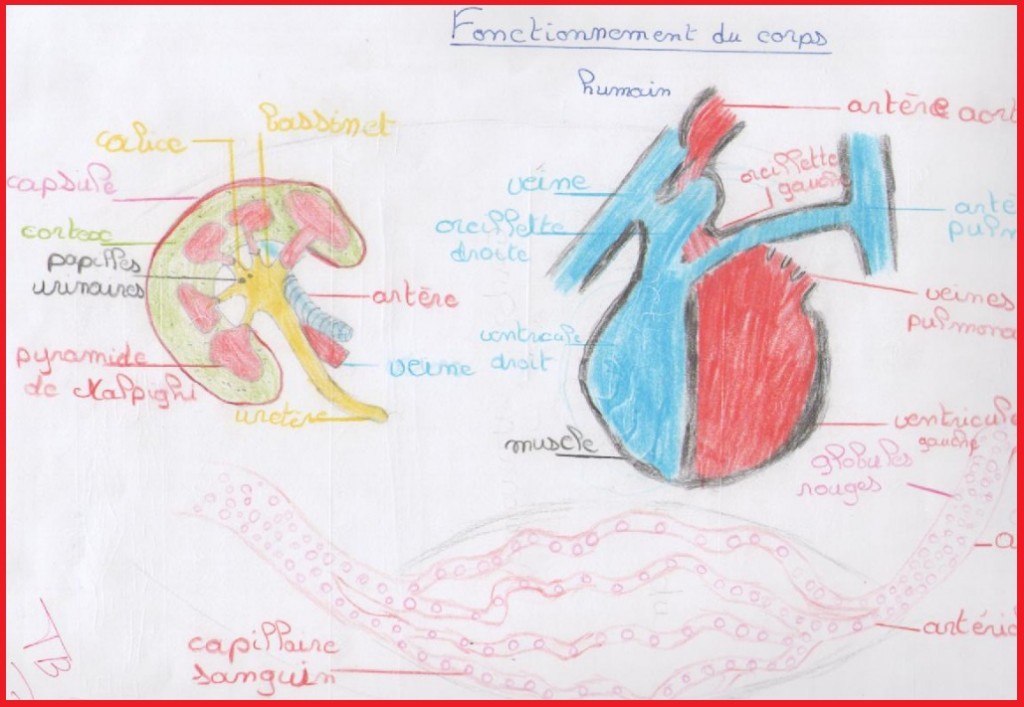 Fonctionnement du corps
humain
calice
bassinet
capsule
cortex
papilles
urinaires
pyramide
de Malpighi
uretère
artère
veine
artère aort
veine
oreillette
gauche
oreillette
droite
arté
pulm
veines
pulmona
ventricule
droit
muscle
ventricule
gauche
globules
rouges
a
artério
capillaire
sanguin
TB